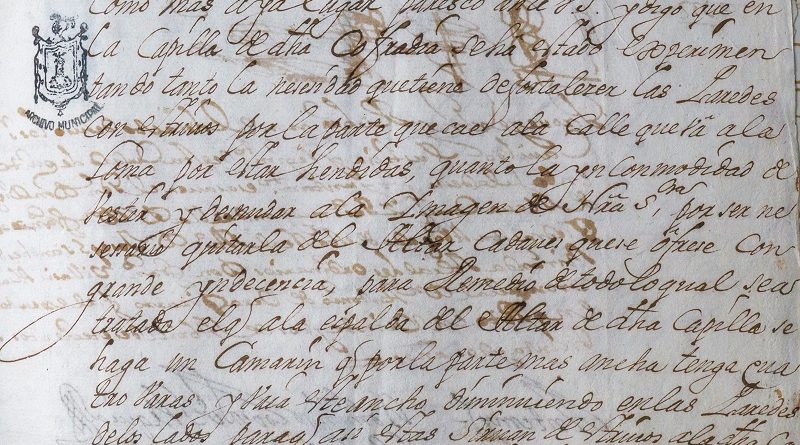 como mas aya lugar paresco ante V.S. y digo que en
ARCHIVO MUNICIPAL
la Capilla de dha Cofradia se ha estado experimen
tando tanto la nesesidad que tiene de fortaleser las Paredes
con estrivos por la parte que cae a la Calle que va a la
Loma por estar hendidas, quanto la yncommodidad de
bestir y desnudar a la Imagen de Nrâ Srâ, por ser ne
sesario quitarla del Altar cada ves que se ofrese con
grande yndecencia, para Remedio de todo lo qual se a
tratado el q̃ a la espalda del Altar de dha Capilla se
haga un Camarin q̃ por la parte mas ancha tenga cua
tro Varas y vaia diminuiendo en las Paredes
de los lados para q̃ estas sirvan de